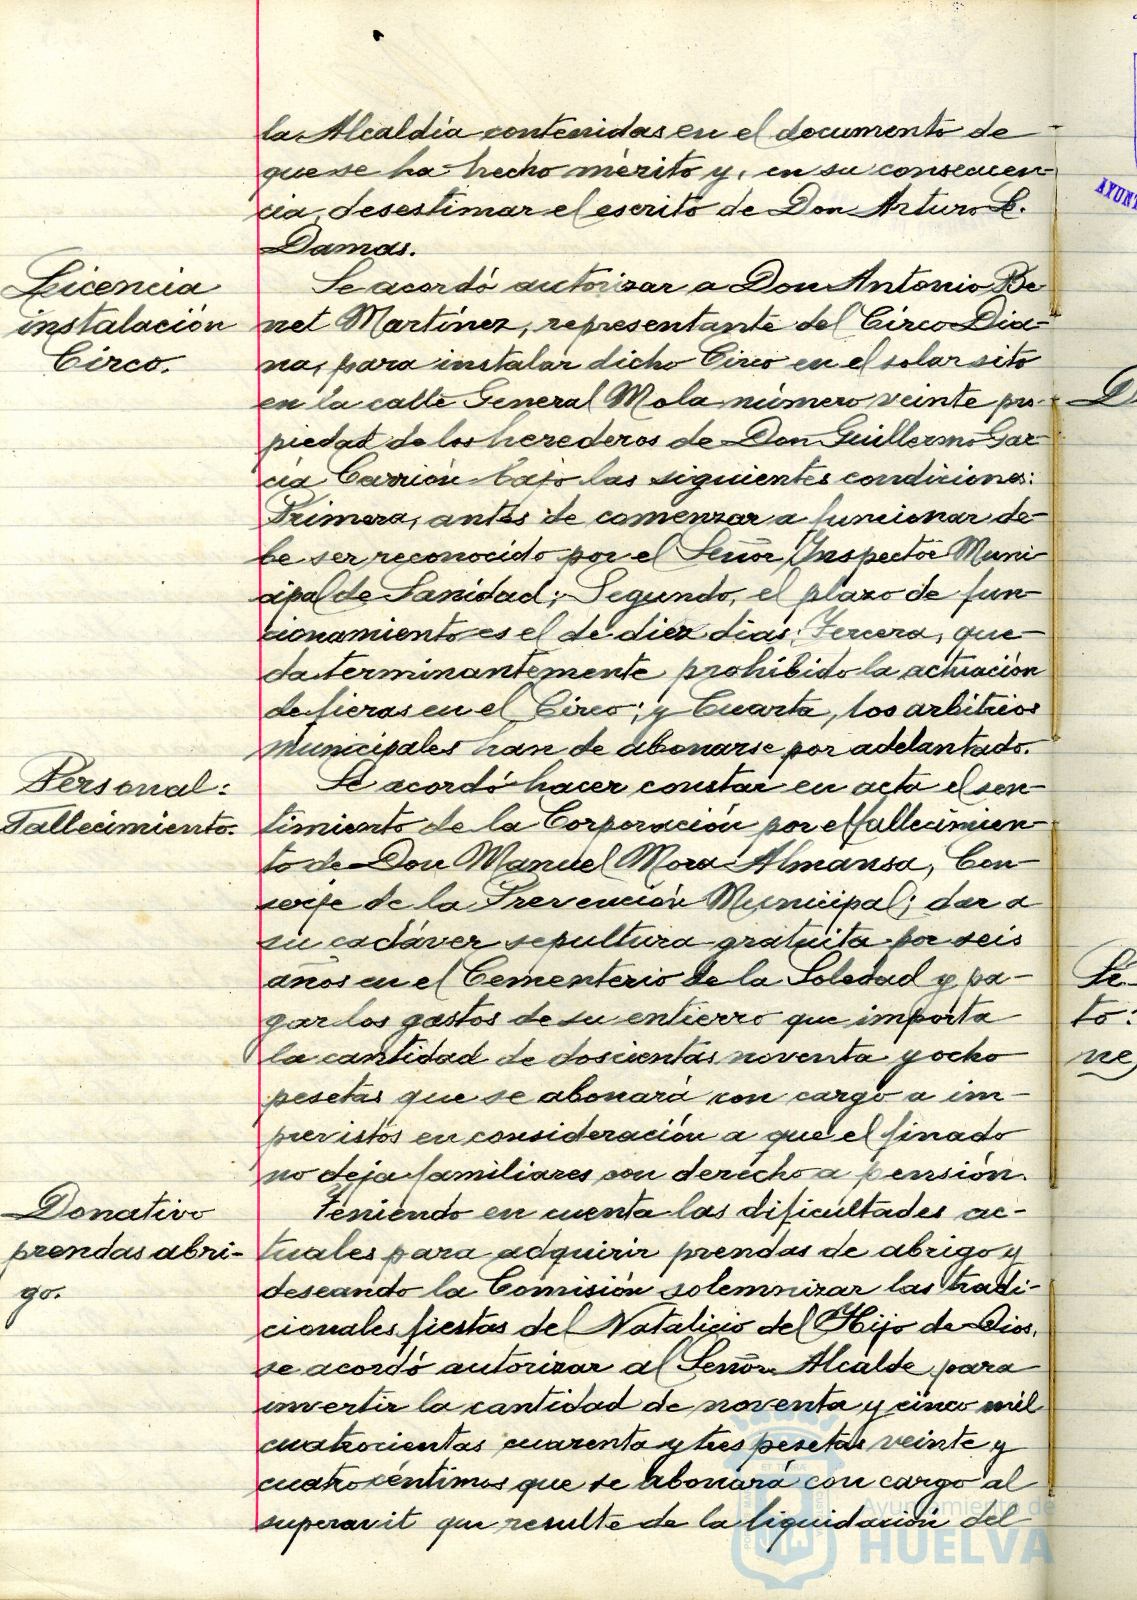 la Alcaldía contenidas en el documento de
que se ha hecho mérito y, en su consecuen-
cia, desestimar el escrito de Don Arturo L.
Damas.
Licencia
instalación
Circo.
Se acordó autorizar a Don Antonio Be
net Martínez, representante del Circo Dia-
na, para instalar dicho Circo en el solar sito
en la calle General Mola número veinte pro-
piedad de los herederos de Don Guillermo Gar-
cía Carrión bajo las siguientes condiciones:
Primera, antes de comenzar a funcionar de-
be ser reconocido por el Señor Inspector Muni-
cipal de Sanidad; Segundo, el plazo de fun-
cionamiento es el de diez días; Tercera, que-
da terminantemente prohibido la actuación
de fieras en el Circo; y Cuarta, los arbitrios
municipales han de abonarse por adelantado.
Personal:
Fallecimiento.
Se acordó hacer constar en acta el sen-
timiento de la Corporación por el fallecimien-
to de Don Manuel Mora Almansa, Con-
serje de la Prevención Municipal; dar a
su cadáver sepultura gratuita por seis
años en el Cementerio de la Soledad y pa-
gar los gastos de su entierro que importa
la cantidad de doscientas noventa y ocho
pesetas que se abonará con cargo a im-
previstos en consideración a que el finado
no deja familiares con derecho a pensión.
Donativo
prendas abri-
go.
Teniendo en cuenta las dificultades ac-
tuales para adquirir prendas de abrigo y
deseando la Comisión solemnizar las tradi-
cionales fiestas del Natalicio del Hijo de Dios,
se acordó autorizar al Señor Alcalde para
invertir la cantidad de noventa y cinco mil
cuatrocientas cuarenta y tres pesetas veinte y
cuatro céntimos que se abonará con cargo al
superavit que resulte de la liquidación del
Ayuntamiento de
HUELVA